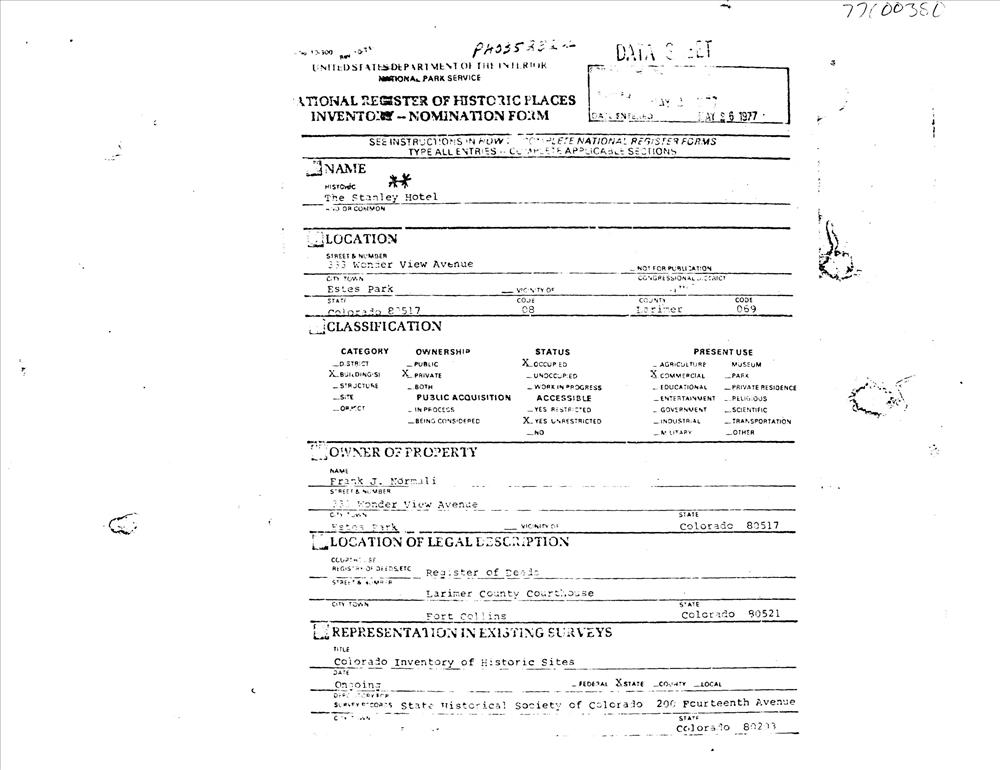 DATA
UNITED STATES DEPARTMENT OF THE INTERIOR
NATIONAL PARK SERVICE
NATIONAL REGISTER OF HISTORIC PLACES
INVENTORY -- NOMINATION FORM
DATE ENTERED MAY 26 1977
SEE INSTRUCTIONS IN HOW COMPLETE NATIONAL REGISTER FORMS
TYPE ALL ENTRIES -- COMPLETE APPLICABLE SECTIONS
NAME
HISTORIC **
The Stanley Hotel
AND/OR COMMON
LOCATION
STREET & NUMBER
333 Wonder View Avenue
_ NOT FOR PUBLICATION
CITY, TOWN CONGRESSIONAL DISTRICT
Estes Park __ VICINITY OF
STATE CODE COUNTY CODE
Colorado 80517 08 Larimer 069
CLASSIFICATION
CATEGORY OWNERSHIP STATUS PRESENT USE
_DISTRICT _PUBLIC X_OCCUPIED _AGRICULTURE MUSEUM
X_BUILDING(S) X_PRIVATE _UNOCCUPIED X_COMMERCIAL _PARK
_STRUCTURE _BOTH _WORK IN PROGRESS _EDUCATIONAL _PRIVATE RESIDENCE
_SITE PUBLIC ACQUISITION ACCESSIBLE _ENTERTAINMENT _RELIGIOUS
_OBJECT _IN PROCESS _YES RESTRICTED _GOVERNMENT _SCIENTIFIC
_BEING CONSIDERED X_YES UNRESTRICTED _INDUSTRIAL _TRANSPORTATION
_NO _MILITARY _OTHER
OWNER OF PROPERTY
NAME
Frank J. Normali
STREET & NUMBER
333 Wonder View Avenue
CITY, TOWN STATE
Estes Park __ VICINITY OF Colorado 80517
LOCATION OF LEGAL DESCRIPTION
COURTHOUSE
REGISTRY OF DEEDS, ETC Register of Deeds
STREET & NUMBER
Larimer County Courthouse
CITY TOWN STATE
Fort Collins Colorado 80521
REPRESENTATION IN EXISTING SURVEYS
TITLE
Colorado Inventory of Historic Sites
DATE
Ongoing _FEDERAL X STATE _COUNTY _LOCAL
DEPOSITORY FOR
SURVEY RECORDS State Historical Society of Colorado 200 Fourteenth Avenue
CITY TOWN STATE
Colorado 80203